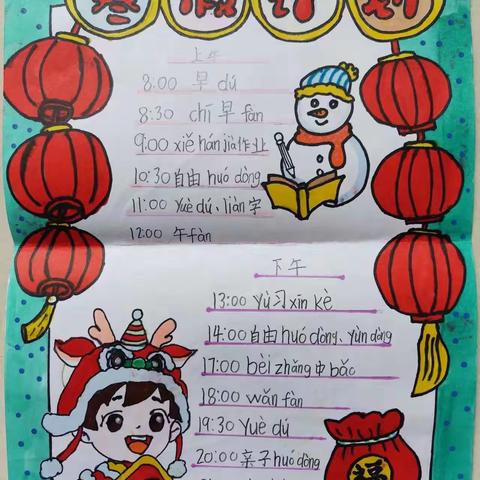 寒假计划
上午
8:00 早 dú
8:30 chī 早 fàn
9:00 xiě hán jià 作业
10:30 自由 huó dòng
11:00 yuè dú、liàn 字
12:00 午 fàn
下午
13:00 yù 习 xīn kè
14:00 自由 huó dòng、yùn dòng
17:00 bèi zhǎng 中 bǎo
18:00 wǎn fàn
19:30 yuè dú
20:00 亲子 huó dòng
福